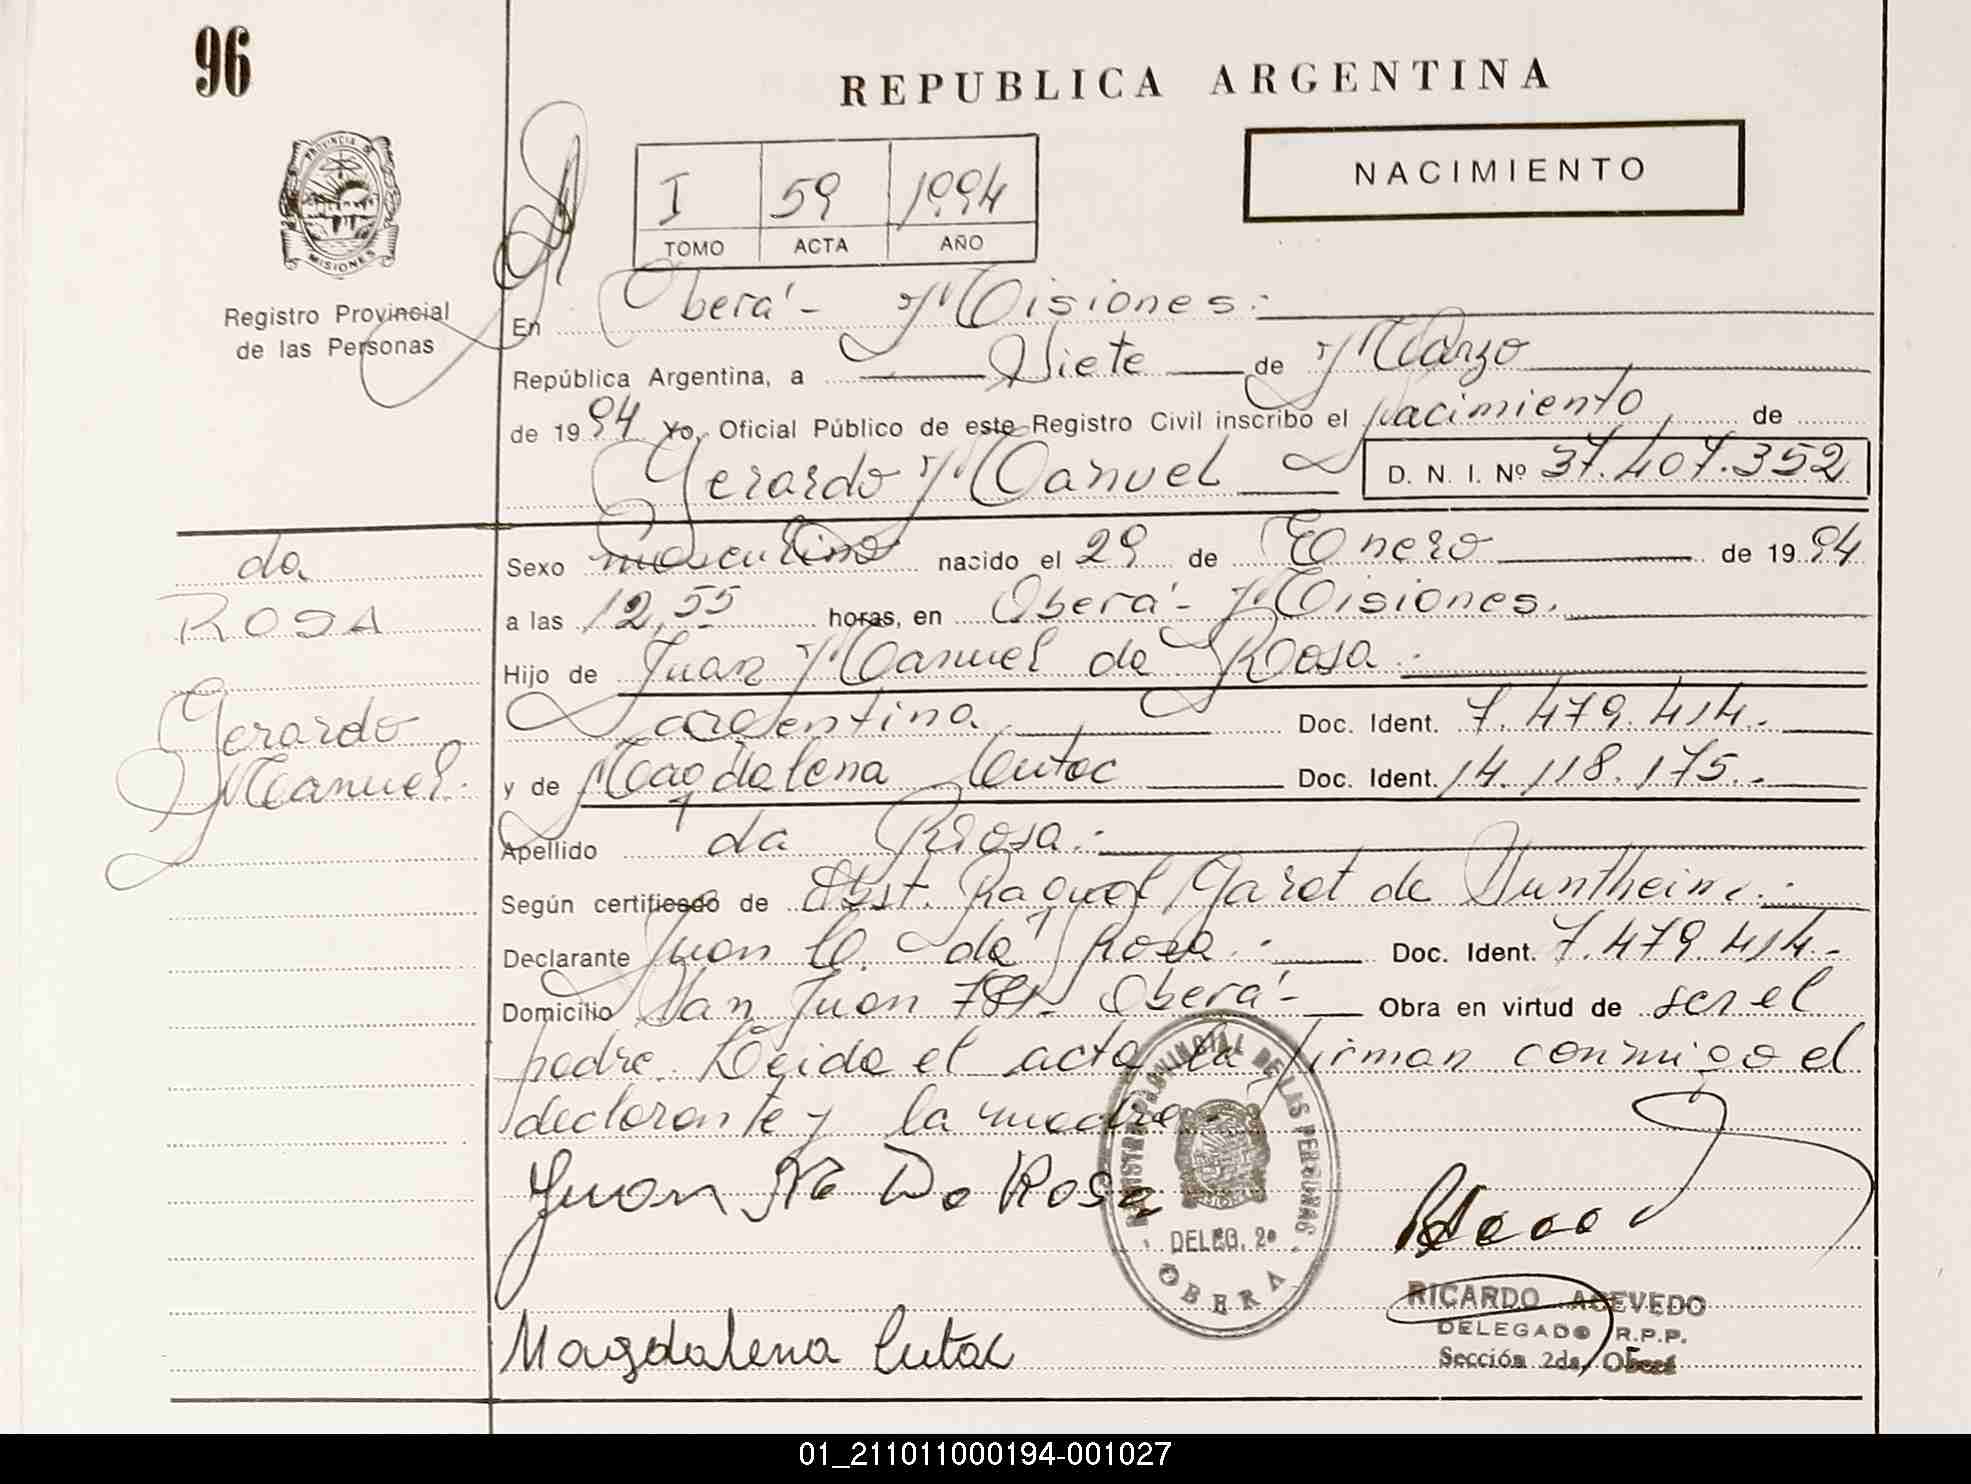 96
REPUBLICA ARGENTINA
PROVINCIA D
MISIONES
Registro Provincial
de las Personas
I 59 1994
TOMO ACTA AÑO
NACIMIENTO
En Oberá - Misiones.-
República Argentina, a Siete de Marzo
de 1994 Yo, Oficial Público de este Registro Civil inscribo el nacimiento de
Gerardo Manuel D. N. I. Nº 37.407.352
da
ROSA
Gerardo
Manuel.
Sexo masculino nacido el 29 de Enero de 1994
a las 12,55 horas, en Oberá - Misiones.
Hijo de Juan Manuel da Rosa.-
argentina Doc. Ident. 7.479.414.-
y de Magdalena Lutac Doc. Ident. 14.118.175.-
Apellido da Rosa.-
Según certificado de Obst. Raquel Garet de
Declarante Juan M. da Rosa.- Doc. Ident. 7.479.414.-
Domicilio San Juan Oberá - Obra en virtud de ser el
padre. Leida el acta la firman conmigo el
declarante y la madre.-
Juan M Da Rosa
REGISTRO PROVINCIAL DE LAS PERSONAS
DELEG. 2ª
OBERA
RICARDO ACEVEDO
DELEGADO R.P.P.
Sección 2da. Oberá
Magdalena Lutac
01_211011000194-001027